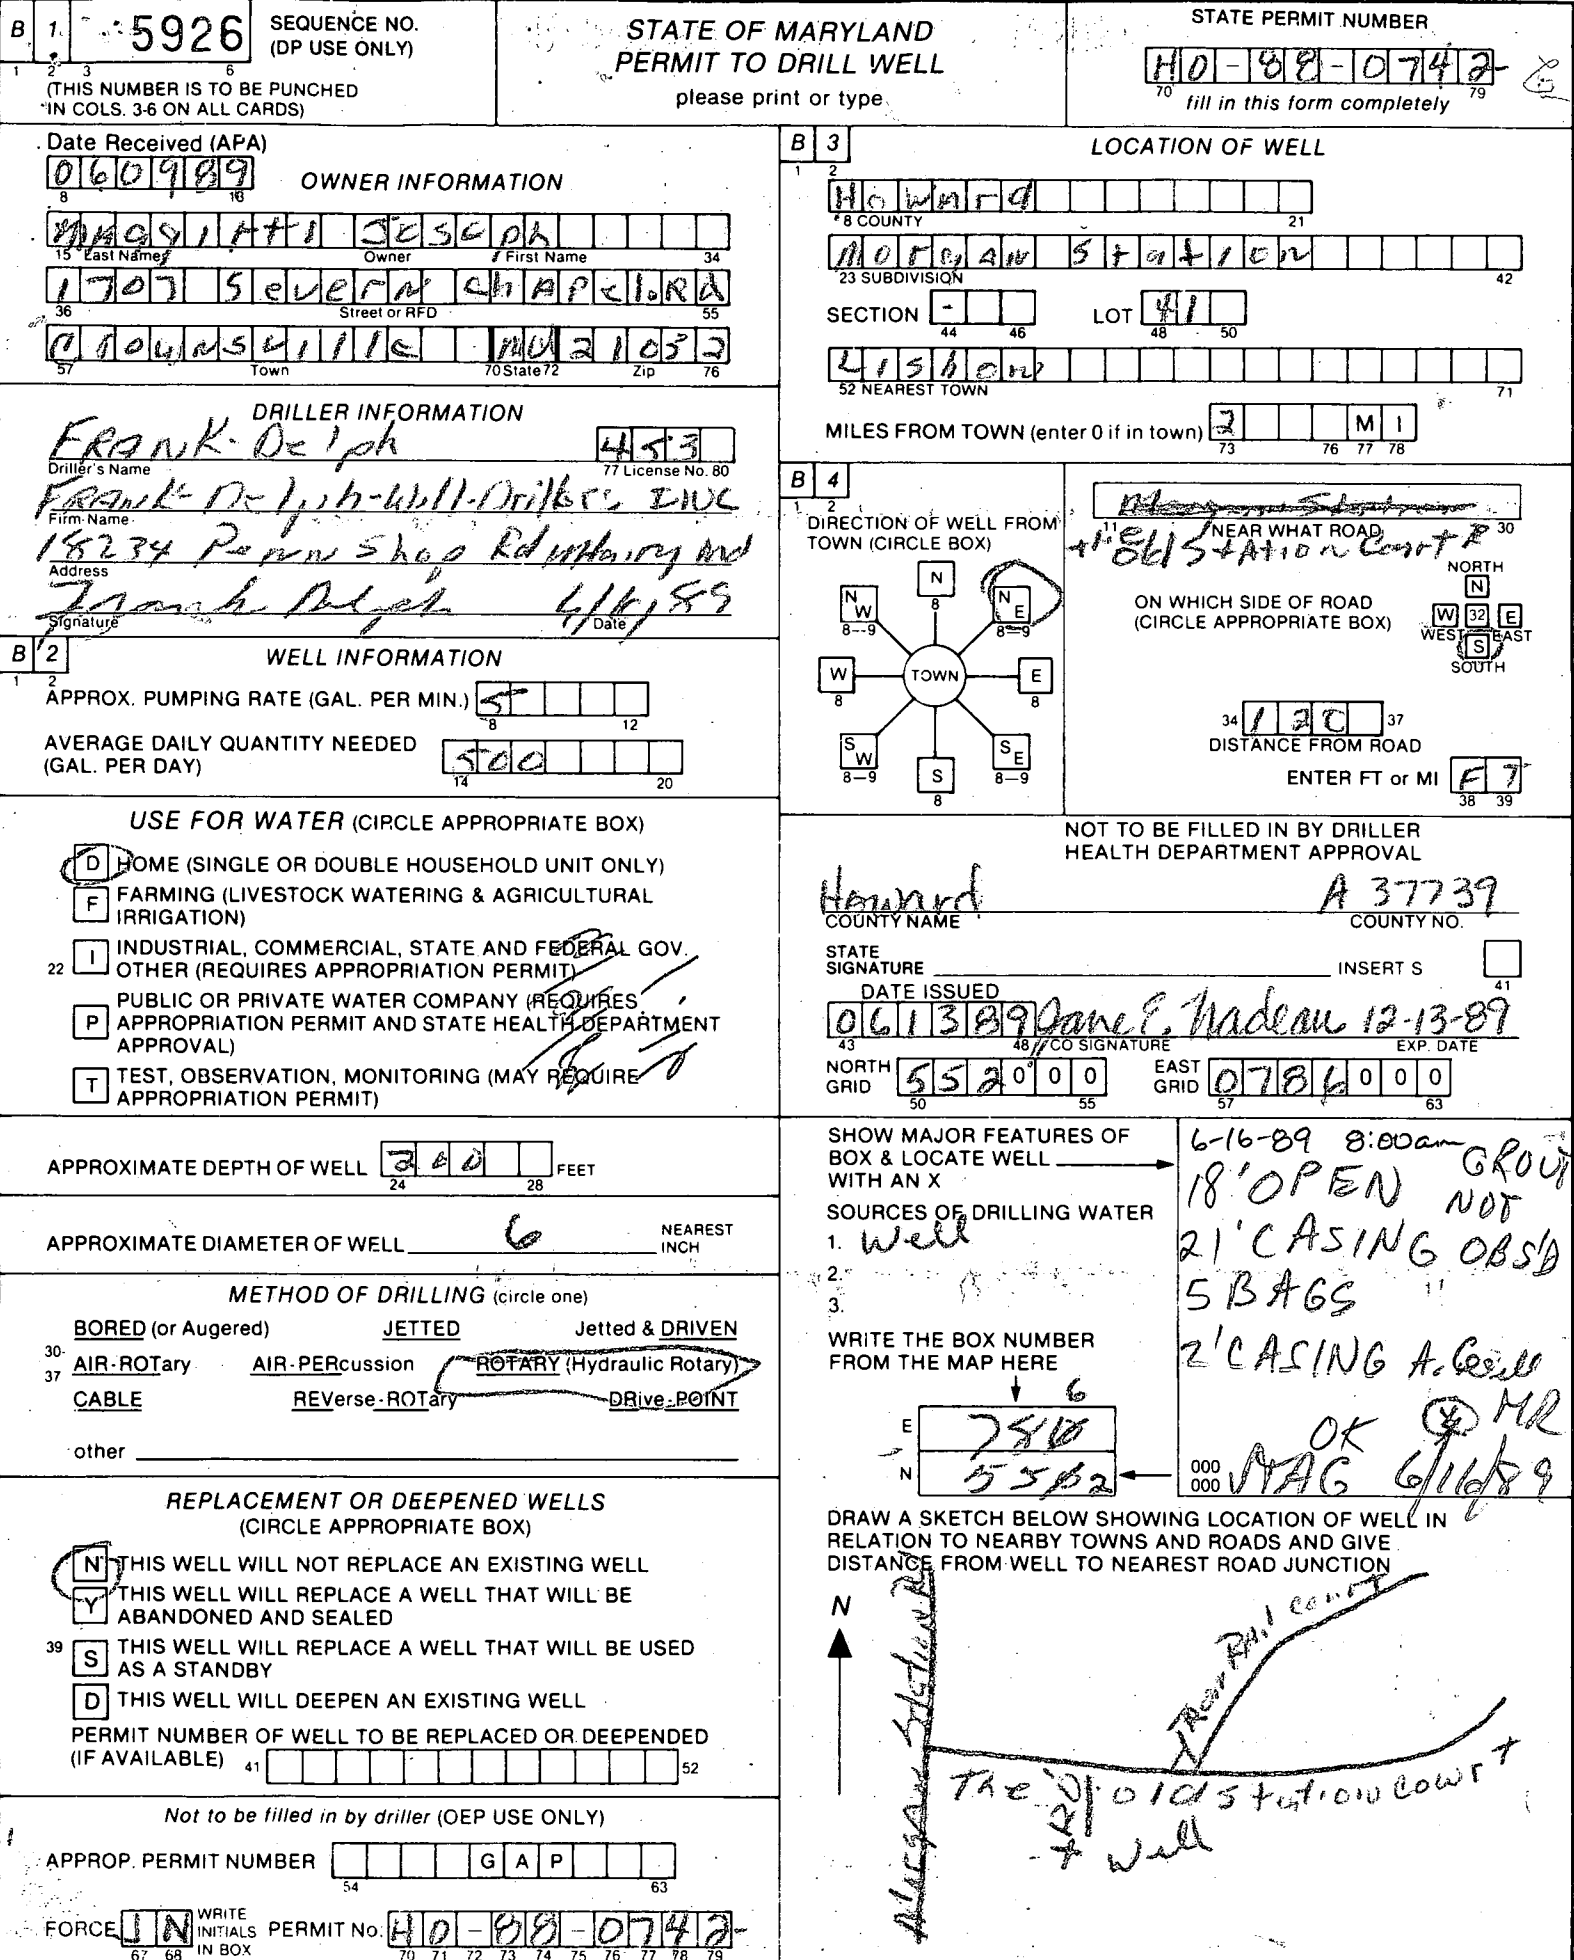 B 1 5926 SEQUENCE NO.
(DP USE ONLY)
1 2 3 6
(THIS NUMBER IS TO BE PUNCHED
IN COLS. 3-6 ON ALL CARDS)
STATE OF MARYLAND
PERMIT TO DRILL WELL
please print or type
STATE PERMIT NUMBER
HO-88-0742
70 79
fill in this form completely
Date Received (APA)
060989
8 13
OWNER INFORMATION
Joseph
15 Last Name Owner First Name 34
1707 Severn ChApel.Rd
36 Street or RFD 55
Crownsville MD 21032
57 Town 70 State 72 Zip 76
DRILLER INFORMATION
FRANK Delph 453
Driller's Name 77 License No. 80
FRANK Delph-Well-Drillers INC
Firm Name
18234 Penn Shop Rd mtairy md
Address
Frank Delph
Signature Date
B 2 WELL INFORMATION
1 2
APPROX. PUMPING RATE (GAL. PER MIN.) 5
8 12
AVERAGE DAILY QUANTITY NEEDED
(GAL. PER DAY) 500
14 20
USE FOR WATER (CIRCLE APPROPRIATE BOX)
D HOME (SINGLE OR DOUBLE HOUSEHOLD UNIT ONLY)
F FARMING (LIVESTOCK WATERING & AGRICULTURAL
IRRIGATION)
22 I INDUSTRIAL, COMMERCIAL, STATE AND FEDERAL GOV.
OTHER (REQUIRES APPROPRIATION PERMIT)
P PUBLIC OR PRIVATE WATER COMPANY (REQUIRES
APPROPRIATION PERMIT AND STATE HEALTH DEPARTMENT
APPROVAL)
T TEST, OBSERVATION, MONITORING (MAY REQUIRE
APPROPRIATION PERMIT)
APPROXIMATE DEPTH OF WELL 200 FEET
24 28
APPROXIMATE DIAMETER OF WELL 6 NEAREST
INCH
METHOD OF DRILLING (circle one)
BORED (or Augered) JETTED Jetted & DRIVEN
30-
37 AIR-ROTary AIR-PERcussion ROTARY (Hydraulic Rotary)
CABLE REVerse-ROTary DRive-POINT
other
REPLACEMENT OR DEEPENED WELLS
(CIRCLE APPROPRIATE BOX)
N THIS WELL WILL NOT REPLACE AN EXISTING WELL
Y THIS WELL WILL REPLACE A WELL THAT WILL BE
ABANDONED AND SEALED
39 S THIS WELL WILL REPLACE A WELL THAT WILL BE USED
AS A STANDBY
D THIS WELL WILL DEEPEN AN EXISTING WELL
PERMIT NUMBER OF WELL TO BE REPLACED OR DEEPENDED
(IF AVAILABLE) 41 52
Not to be filled in by driller (OEP USE ONLY)
APPROP. PERMIT NUMBER G A P
54 63
FORCE JN WRITE
INITIALS
IN BOX PERMIT No. HO-88-0742
67 68 70 71 72 73 74 75 76 77 78 79
B 3 LOCATION OF WELL
1 2
Howard
8 COUNTY 21
MorgAN Station
23 SUBDIVISION 42
SECTION - LOT 41
44 46 48 50
Lisbon
52 NEAREST TOWN 71
MILES FROM TOWN (enter 0 if in town) 2 M I
73 76 77 78
B 4
1 2
DIRECTION OF WELL FROM
TOWN (CIRCLE BOX)
N 8
NW 8-9
NE 8-9
W 8
TOWN
E 8
SW 8-9
SE 8-9
S 8
11 NEAR WHAT ROAD 30
the old StAtion Court
ON WHICH SIDE OF ROAD
(CIRCLE APPROPRIATE BOX)
NORTH
N
W 32 E
WEST EAST
S
SOUTH
34 120 37
DISTANCE FROM ROAD
ENTER FT or MI FT
38 39
NOT TO BE FILLED IN BY DRILLER
HEALTH DEPARTMENT APPROVAL
Howard A 37739
COUNTY NAME COUNTY NO.
STATE
SIGNATURE INSERT S
41
DATE ISSUED
061389 Jane E. Nadeau 12-13-89
43 48 CO SIGNATURE EXP. DATE
NORTH
GRID 552000 EAST
GRID 0786000
50 55 57 63
SHOW MAJOR FEATURES OF
BOX & LOCATE WELL
WITH AN X
SOURCES OF DRILLING WATER
1. Well
2.
3.
WRITE THE BOX NUMBER
FROM THE MAP HERE
6
E
N
6-16-89 8:00am GROUT
18' OPEN NOT
21' CASING OBS'D
5 BAGS "
2' CASING
OK MR
000
000 6/16/89
DRAW A SKETCH BELOW SHOWING LOCATION OF WELL IN
RELATION TO NEARBY TOWNS AND ROADS AND GIVE
DISTANCE FROM WELL TO NEAREST ROAD JUNCTION
N
Morgan Station Rd
Iron RAil court
The old station court
120'
+ Well